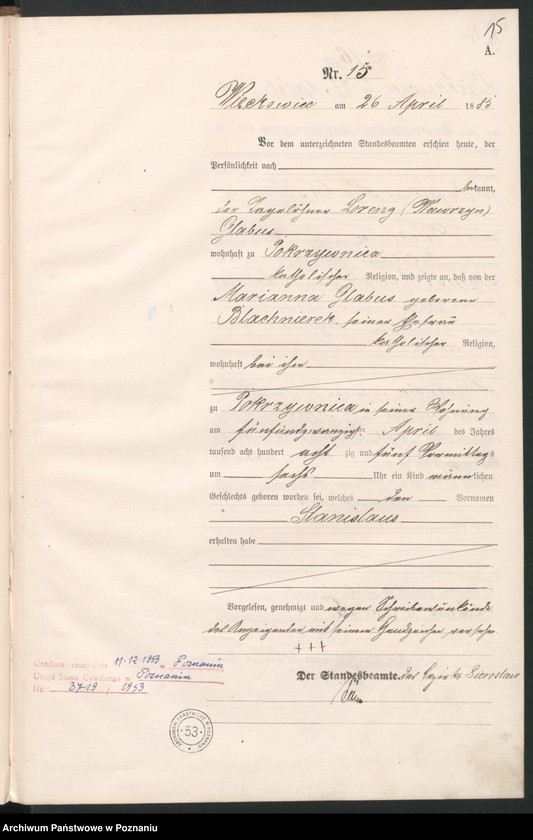 15
A.
Nr. 15
Więckowice am 26 April 1885
Vor dem unterzeichneten Standesbeamten erschien heute, der
Persönlichkeit nach
bekannt,
der Tagelöhner Lorenz (Wawrzyn)
Glabus
wohnhaft zu Pokrzywnica
katholischer Religion, und zeigte an, daß von der
Marianna Glabus geborene
Blachnierek seiner Ehefrau
katholischer Religion,
wohnhaft bei ihm
zu Pokrzywnica in seiner Wohnung
am fünfundzwanzigsten April des Jahres
tausend acht hundert acht zig und fünf Vormittags
um sechs Uhr ein Kind männlichen
Geschlechts geboren worden sei, welches den Vornamen
Stanislaus
erhalten habe
Vorgelesen, genehmigt und wegen Schreibensunkunde
des Anzeigenden mit seinem Handzeichen versehen
+++
Der Standesbeamte. des Bezirks
11.12.1953 w Poznaniu
Urząd Stanu Cywilnego w Poznaniu
Nr. 3719 / 1953
ARCHIWUM PAŃSTWOWE W POZNANIU
53
Archiwum Państwowe w Poznaniu